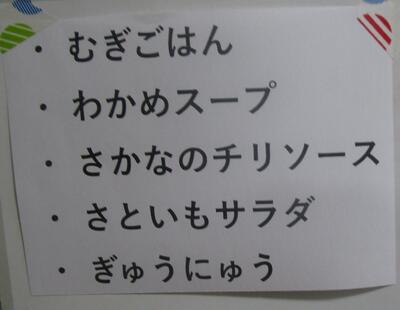 ・ むぎごはん
・ わかめスープ
・ さかなのチリソース
・ さといもサラダ
・ ぎゅうにゅう